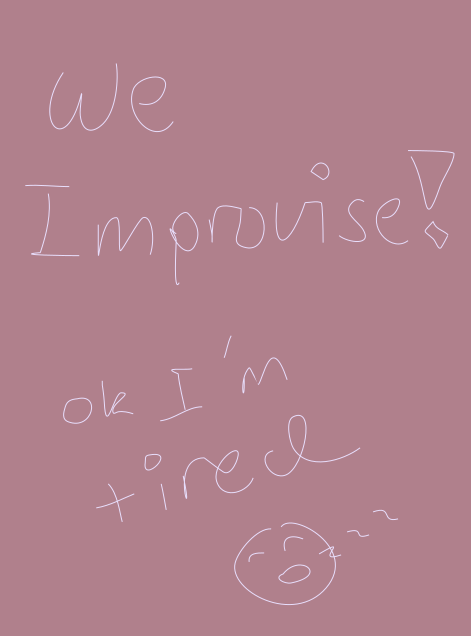 We
Improvise!
ok I'm
tired
zzz